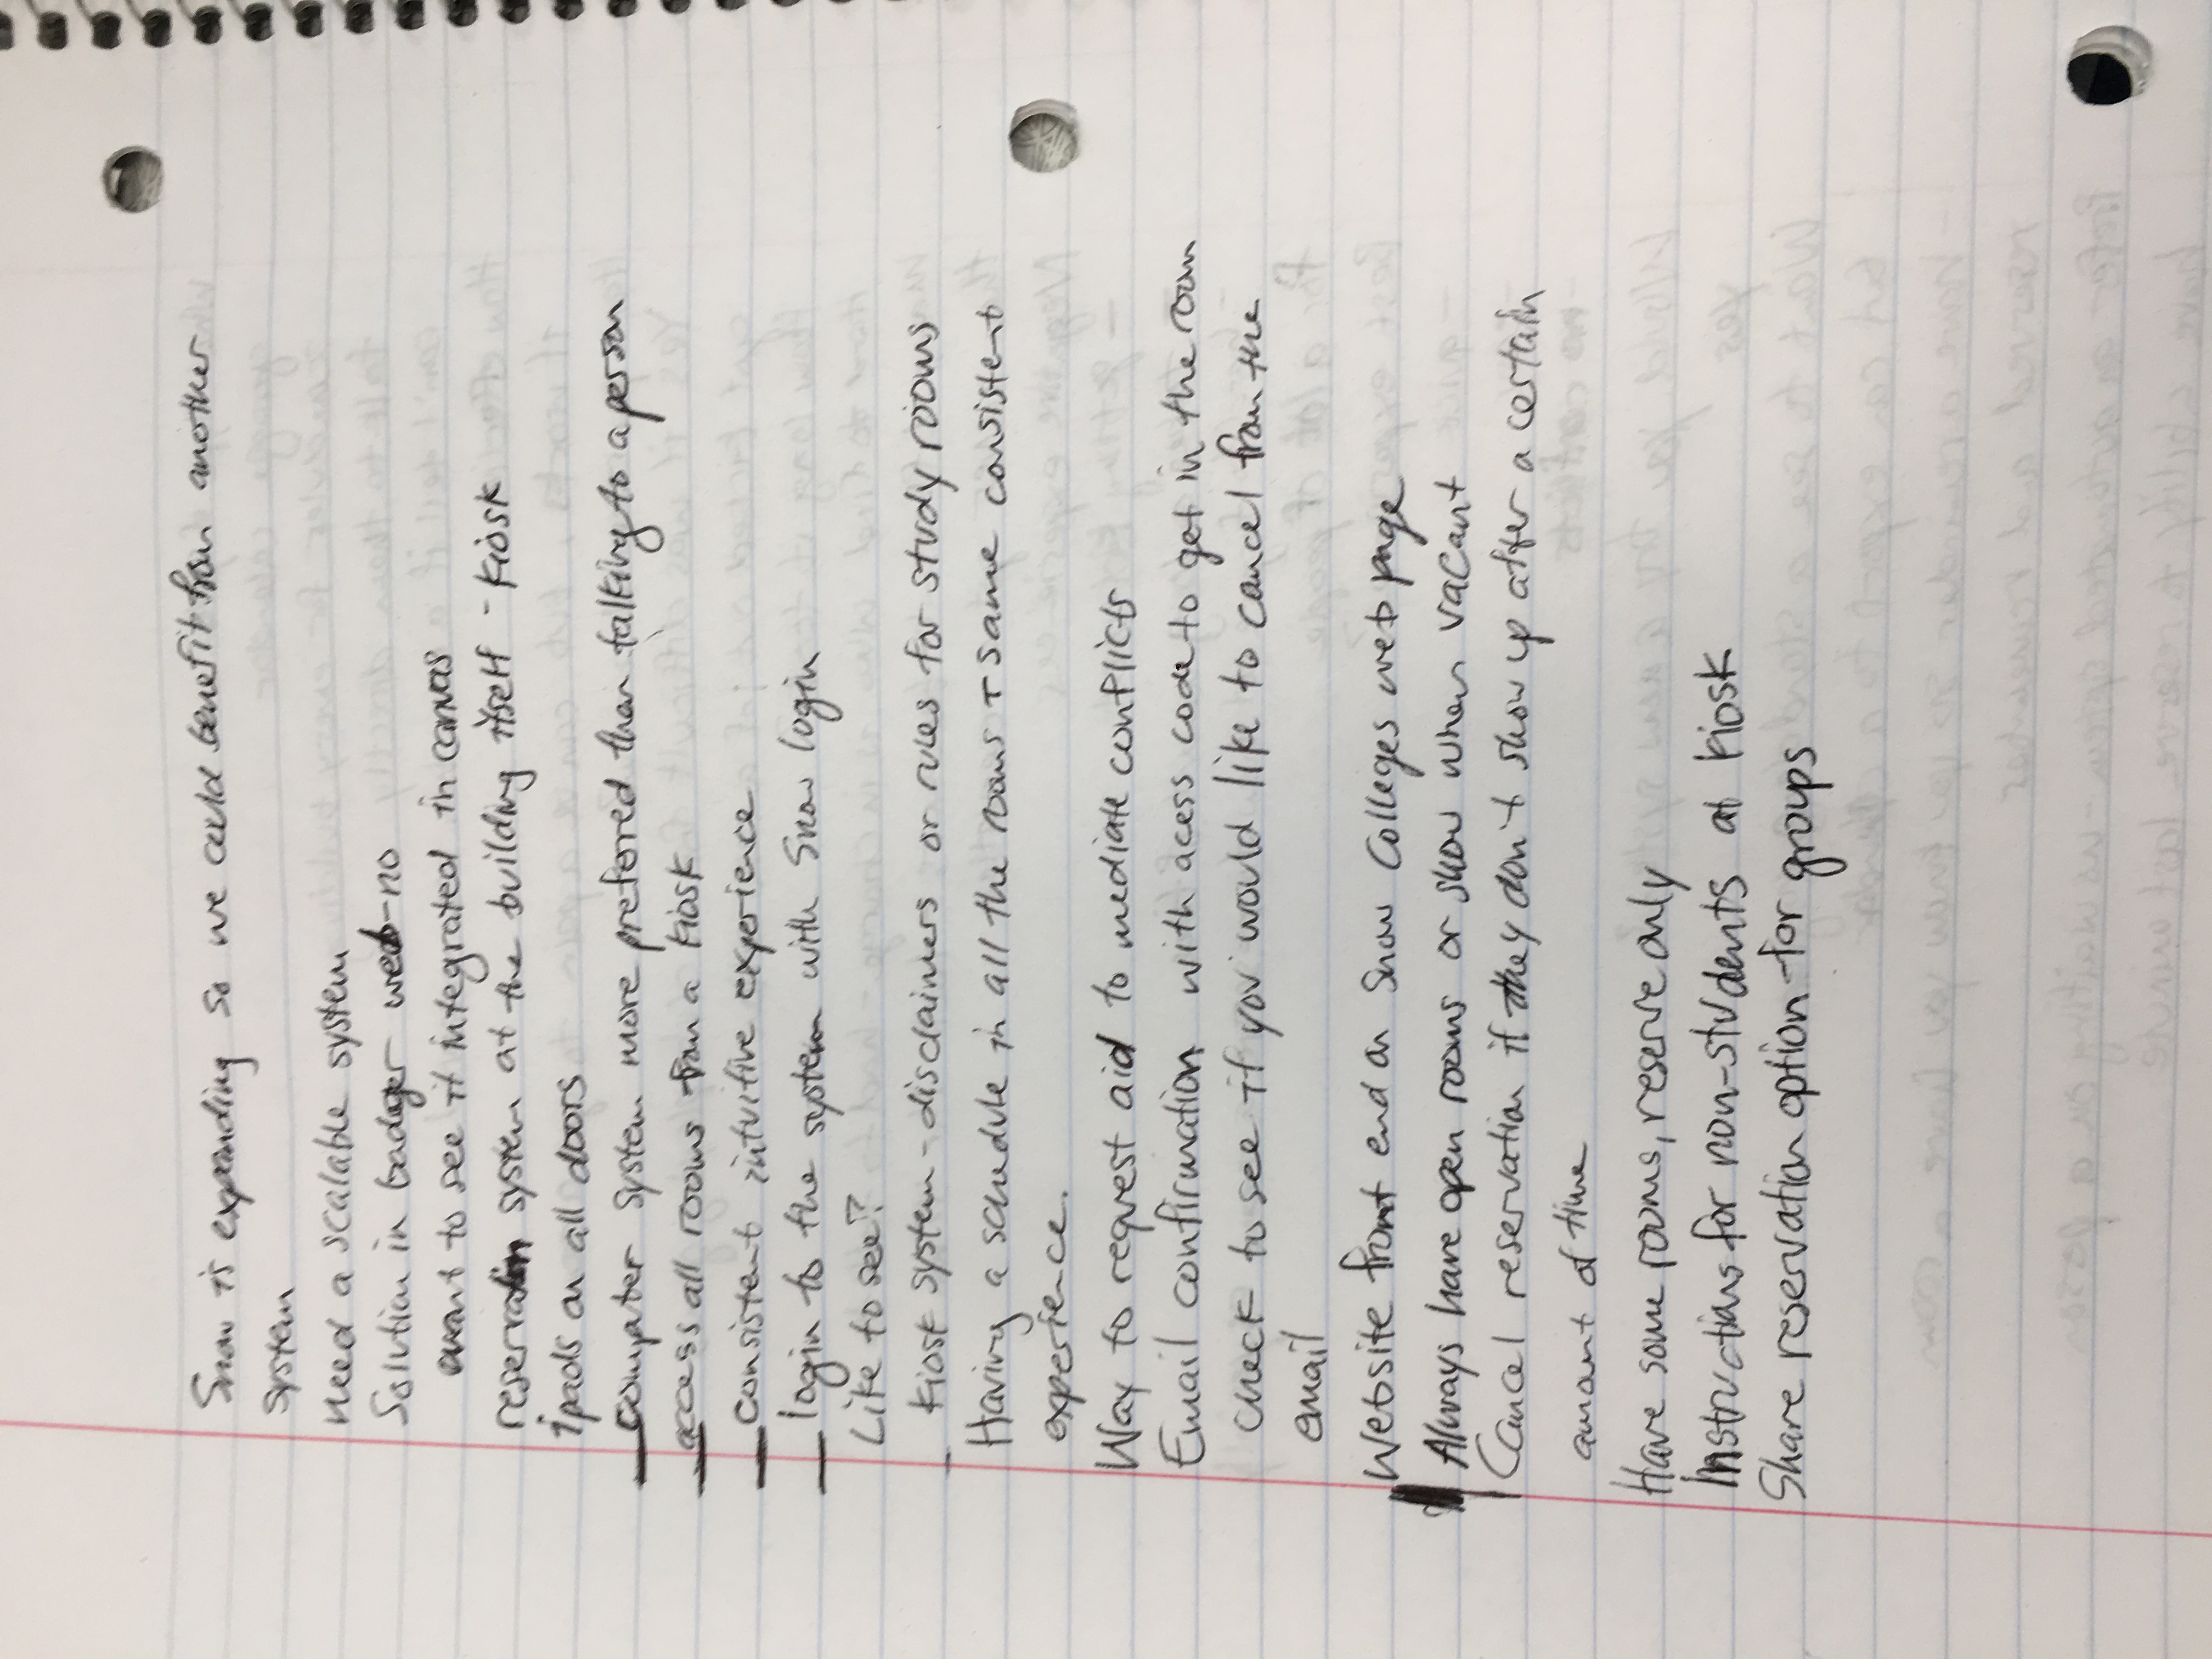 Snow is expanding so we could benefit from another
system
need a scalable system
Solution in badger web-no
want to see it integrated in canvas
reservation system at the building itself - kiosk
ipads on all doors
computer system more preferred than talking to a person
access all rooms from a kiosk
consistent intuitive experience
login to the system with Snow login
Like to see?
kiosk system - disclaimers or rules for study rooms
Having a schedule in all the rooms + same consistent
experience.
Way to request aid to mediate conflicts
Email confirmation with acess code to get in the room
check to see if you would like to cancel from the
email
Website front end on Snow Colleges web page
Always have open rooms or show when vacant
Cancel reservation if they don't show up after a certain
amount of time
Have some rooms, reserve only
Instructions for non-students at kiosk
Share reservation option for groups